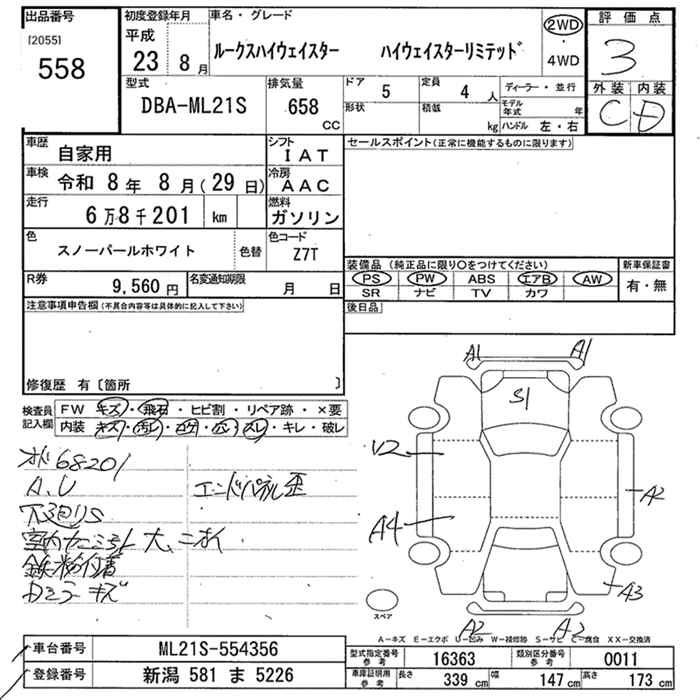 出品番号
[2055]
558
初度登録年月
平成
23 8月
車名・グレード
ルークスハイウェイスター ハイウェイスターリミテッド
2WD
・
4WD
評価点
3
外装 内装
C D
型式
DBA-ML21S
排気量
658
CC
ドア
5
定員
4 人
ディーラー・並行
形状
積載
kg
モデル年式 年
ハンドル 左・右
車歴
自家用
シフト
IAT
車検
令和 8年 8月(29日)
冷房
AAC
走行
6万8千201 km
燃料
ガソリン
色
スノーパールホワイト
色替
色コード
Z7T
R券
9,560 円
名変通知期限
月 日
セールスポイント(正常に機能するものに限ります)
装備品 (純正品に限り○をつけてください)
新車保証書
PS PW ABS エアB AW
SR ナビ TV カワ
有・無
後日品
注意事項申告欄(不具合内容等は具体的に記入して下さい)
修復歴 有〔箇所 〕
検査員
記入欄
FW キズ・飛石・ヒビ割・リペア跡・×要
内装 キズ・汚レ・コゲ・穴・スレ・キレ・破レ
68201
A,U エンドパネル歪
下廻りS
鉄粉付着
キズ
A1 A1
S1
A4
A2
A3
A2
スペア
A-キズ E-エクボ U-凹み W-補修跡 S-サビ C-腐食 XX-交換済
車台番号
ML21S-554356
登録番号
新潟 581 ま 5226
型式指定番号
参考
16363
類別区分番号
参考
0011
車庫証明用
参考
長さ
339 cm
幅
147 cm
高さ
173 cm